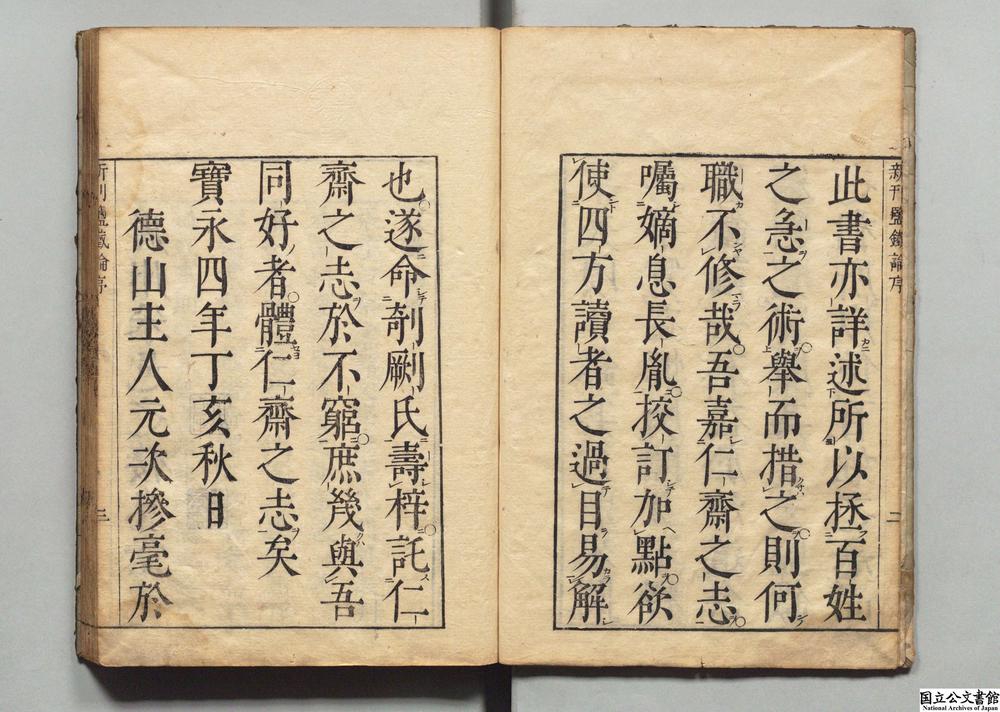 新刊鹽鐵論序
二
此書亦詳述所以拯百姓
之急之術舉而措之則何
職不修哉吾嘉仁齋之志
囑嫡息長胤挍訂加點欲
使四方讀者之過目易解
也遂命剞劂氏壽梓託仁
齋之志於不窮庶幾與吾
同好者體仁齋之志矣
寶永四年丁亥秋日
德山主人元次摻毫於
新刊鹽鐵論序
三
国立公文書館
National Archives of Japan